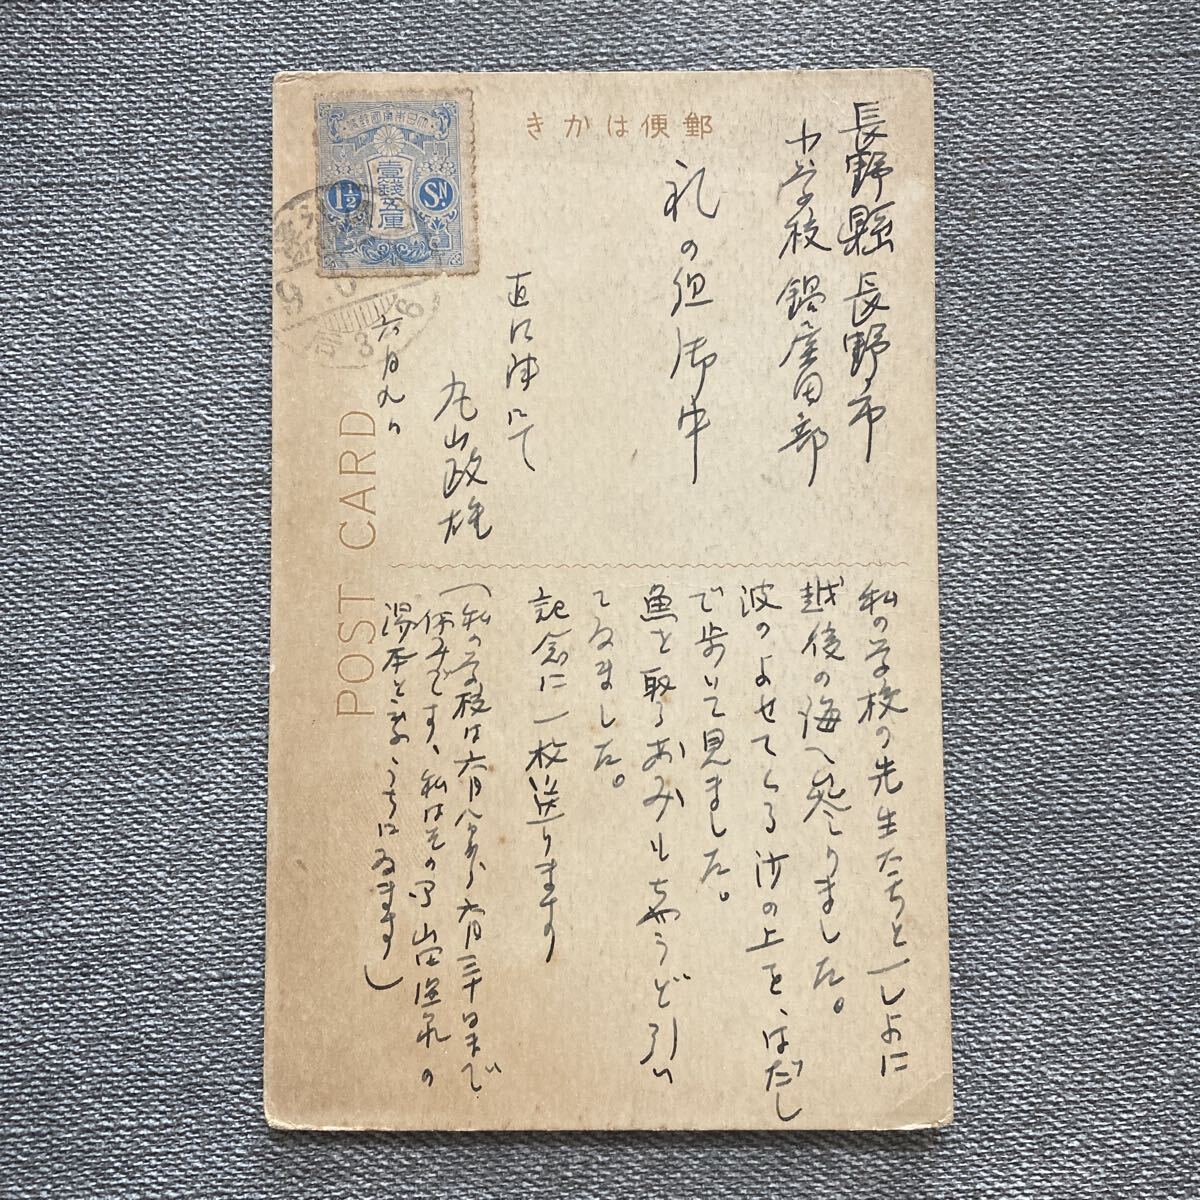 郵便はかき
大日本帝國郵便
壹錢五厘
1½ Sn.
長野縣長野市
鍋屋田部
礼の組御中
直江津にて
丸山政雄
六月九日
POST CARD
私の学校の先生たちと一しよに
越後の海へ参りました。
波のよせてくる沙の上を、はだし
で歩いて見ました。
魚を取るあみもちやうど引い
てゐました。
記念に一枚送ります
(私の学校は六月八日から六月三十日まで
休みです、私はその間山田温泉の
湯本と云ふうちにゐます)